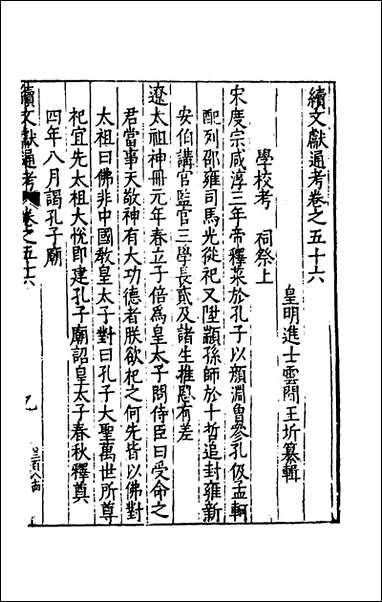 續文獻通考卷之五十六
皇明進士雲間王圻纂輯
學校考 祠祭上
宋度宗咸淳三年帝釋菜於孔子以顏淵曾參孔伋孟軻
配列邵雍司馬光從祀又陞顓孫師於十哲追封雍新
安伯講官監官三學長貳及諸生推恩有差
遼太祖神冊元年春立子倍為皇太子問侍臣曰受命之
君當事天敬神有大功德者朕欲祀之何先皆以佛對
太祖曰佛非中國教皇太子對曰孔子大聖萬世所尊
祀宜先太祖大悅即建孔子廟詔皇太子春秋釋奠
四年八月謁孔子廟
續文獻通考
卷之五十六